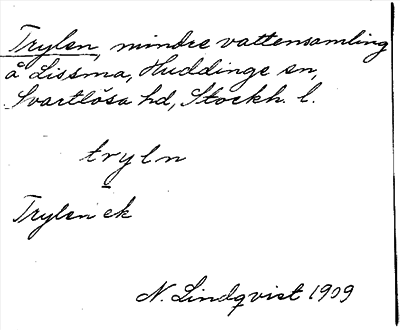 Trylen, mindre vattensamling
å Lissma, Huddinge sn,
Svartlösa hd, Stockh. l.
tryln
Trylen ek
N. Lindqvist 1909